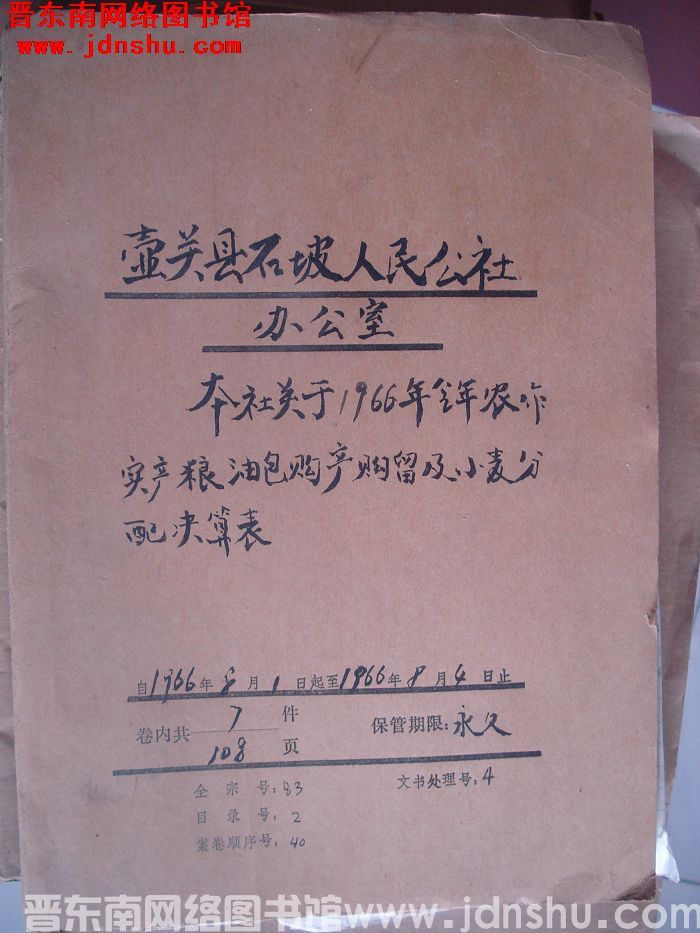 晋东南网络图书馆
www.jdnshu.com
壶关县石坡人民公社
办公室
本社关于1966年全年农作
实产粮油包购产购留及小麦分
配决算表
自1966年8月1日起至1966年8月4日止
卷内共7件
108页
保管期限:永久
全宗号:83
文书处理号:4
目录号:2
案卷顺序号:40
晋东南网络图书馆 www.jdnshu.com